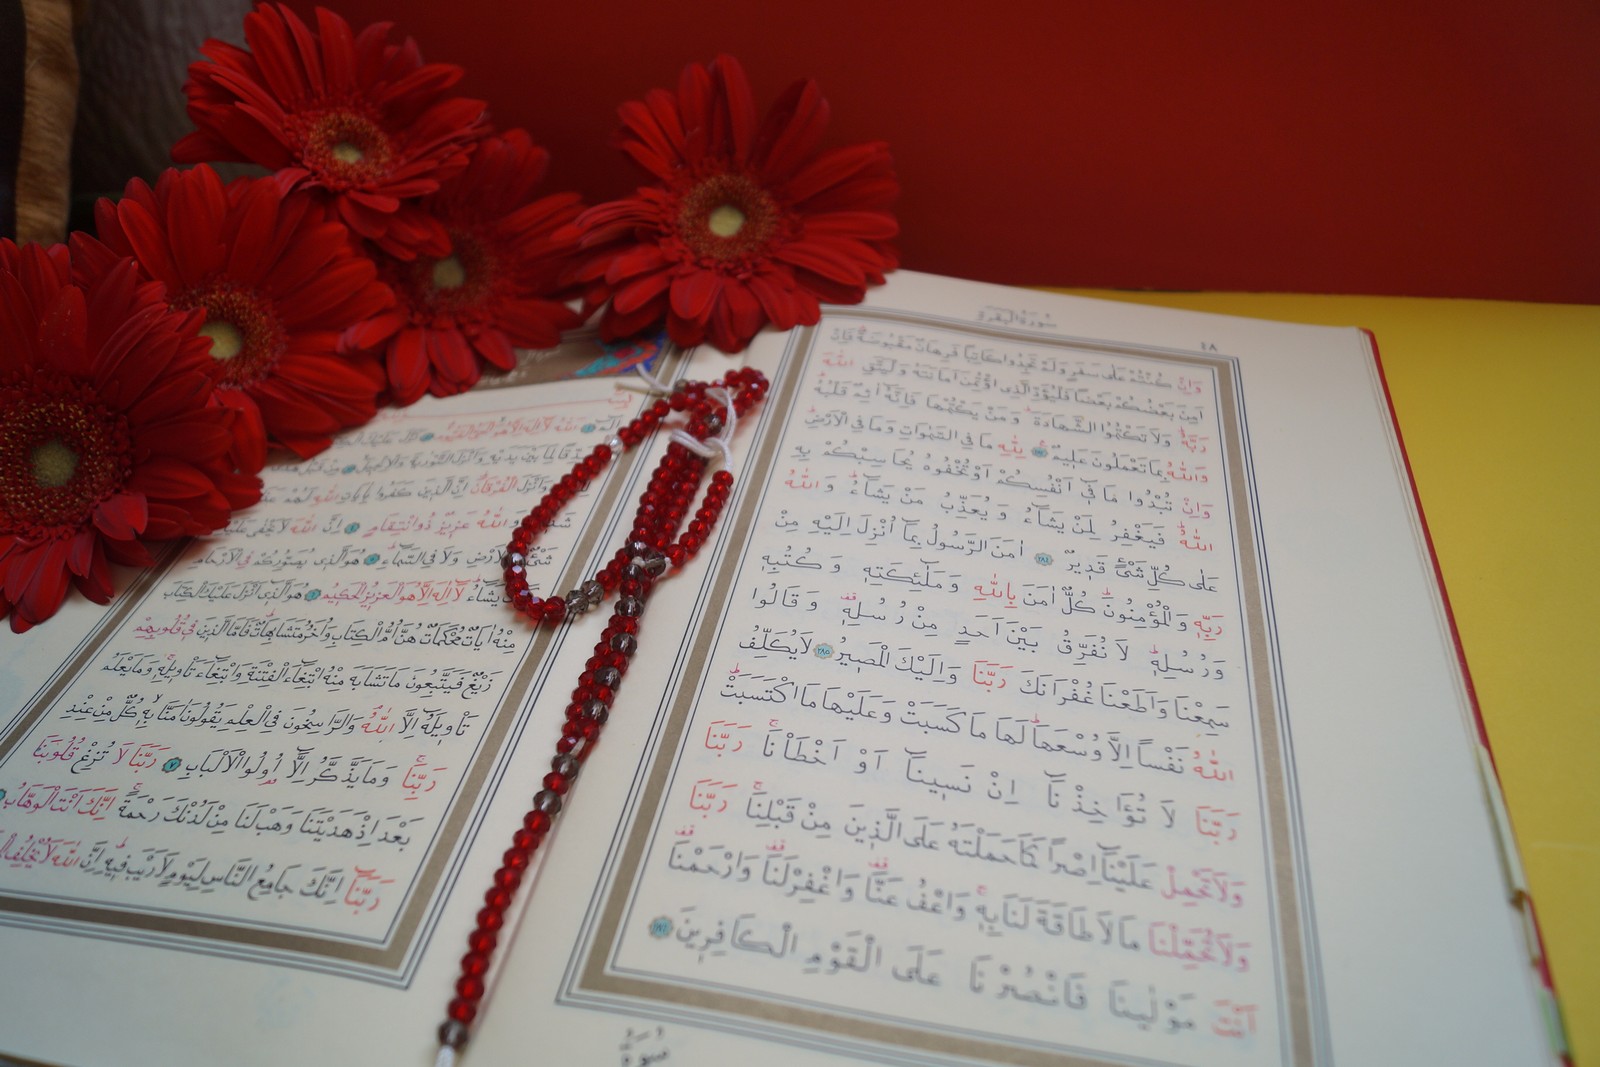 سُورَةُ الْبَقَرَةِ
٤٨
وَاِنْ كُنْتُمْ عَلٰى سَفَرٍ وَلَمْ تَجِدُوا كَاتِبًا فَرِهَانٌ مَقْبُوضَةٌ فَاِنْ
اَمِنَ بَعْضُكُمْ بَعْضًا فَلْيُؤَدِّ الَّذِى اؤْتُمِنَ اَمَانَتَهُ وَلْيَتَّقِ اللّٰهَ
رَبَّهُ وَلَا تَكْتُمُوا الشَّهَادَةَ وَمَنْ يَكْتُمْهَا فَاِنَّهُ اٰثِمٌ قَلْبُهُ
وَاللّٰهُ بِمَا تَعْمَلُونَ عَلِيمٌ ﴿٢٨٣﴾ لِلّٰهِ مَا فِى السَّمٰوَاتِ وَمَا فِى الْاَرْضِ
وَاِنْ تُبْدُوا مَا فِٓى اَنْفُسِكُمْ اَوْ تُخْفُوهُ يُحَاسِبْكُمْ بِهِ
اللّٰهُ فَيَغْفِرُ لِمَنْ يَشَٓاءُ وَيُعَذِّبُ مَنْ يَشَٓاءُ وَاللّٰهُ
عَلٰى كُلِّ شَىْءٍ قَدِيرٌ ﴿٢٨٤﴾ اٰمَنَ الرَّسُولُ بِمَٓا اُنْزِلَ اِلَيْهِ مِنْ
رَبِّهِ وَالْمُؤْمِنُونَ كُلٌّ اٰمَنَ بِاللّٰهِ وَمَلٰٓئِكَتِهِ وَكُتُبِهِ
وَرُسُلِهِ لَا نُفَرِّقُ بَيْنَ اَحَدٍ مِنْ رُسُلِهِ وَقَالُوا
سَمِعْنَا وَاَطَعْنَا غُفْرَانَكَ رَبَّنَا وَاِلَيْكَ الْمَصِيرُ ﴿٢٨٥﴾ لَا يُكَلِّفُ
اللّٰهُ نَفْسًا اِلَّا وُسْعَهَا لَهَا مَا كَسَبَتْ وَعَلَيْهَا مَا اكْتَسَبَتْ
رَبَّنَا لَا تُؤَاخِذْنَٓا اِنْ نَسِينَٓا اَوْ اَخْطَاْنَا رَبَّنَا
وَلَا تَحْمِلْ عَلَيْنَٓا اِصْرًا كَمَا حَمَلْتَهُ عَلَى الَّذِينَ مِنْ قَبْلِنَا رَبَّنَا
وَلَا تُحَمِّلْنَا مَا لَا طَاقَةَ لَنَا بِهِ وَاعْفُ عَنَّا وَاغْفِرْ لَنَا وَارْحَمْنَا
اَنْتَ مَوْلٰينَا فَانْصُرْنَا عَلَى الْقَوْمِ الْكَافِرِينَ ﴿٢٨٦﴾
سُورَةُ
الٓمٓ ﴿١﴾ اَللّٰهُ لَٓا اِلٰهَ اِلَّا هُوَ الْحَىُّ الْقَيُّومُ
لِمَا بَيْنَ يَدَيْهِ وَاَنْزَلَ التَّوْرٰيةَ وَالْاِنْجِيلَ مِنْ قَبْلُ
وَاَنْزَلَ الْفُرْقَانَ اِنَّ الَّذِينَ كَفَرُوا بِاٰيَاتِ اللّٰهِ لَهُمْ
وَاللّٰهُ عَزِيزٌ ذُو انْتِقَامٍ اِنَّ اللّٰهَ لَا يَخْفٰى عَلَيْهِ
شَىْءٌ الْاَرْضِ وَلَا فِى السَّمَٓاءِ هُوَ الَّذِى يُصَوِّرُكُمْ فِى الْاَرْحَامِ
يَشَٓاءُ لَٓا اِلٰهَ اِلَّا هُوَ الْعَزِيزُ الْحَكِيمُ هُوَ الَّذِٓى اَنْزَلَ عَلَيْكَ الْكِتَابَ
مِنْهُ اٰيَاتٌ مُحْكَمَاتٌ هُنَّ اُمُّ الْكِتَابِ وَاُخَرُ مُتَشَابِهَاتٌ فَاَمَّا الَّذِينَ فِى قُلُوبِهِمْ
زَيْغٌ فَيَتَّبِعُونَ مَا تَشَابَهَ مِنْهُ ابْتِغَٓاءَ الْفِتْنَةِ وَابْتِغَٓاءَ تَاْوِيلِهِ وَمَا يَعْلَمُ
تَاْوِيلَهُٓ اِلَّا اللّٰهُ وَالرَّاسِخُونَ فِى الْعِلْمِ يَقُولُونَ اٰمَنَّا بِهِ كُلٌّ مِنْ عِنْدِ
رَبِّنَا وَمَا يَذَّكَّرُ اِلَّٓا اُولُوا الْاَلْبَابِ ﴿٧﴾ رَبَّنَا لَا تُزِغْ قُلُوبَنَا
بَعْدَ اِذْ هَدَيْتَنَا وَهَبْ لَنَا مِنْ لَدُنْكَ رَحْمَةً اِنَّكَ اَنْتَ الْوَهَّابُ
رَبَّنَٓا اِنَّكَ جَامِعُ النَّاسِ لِيَوْمٍ لَا رَيْبَ فِيهِ اِنَّ اللّٰهَ لَا يُخْلِفُ